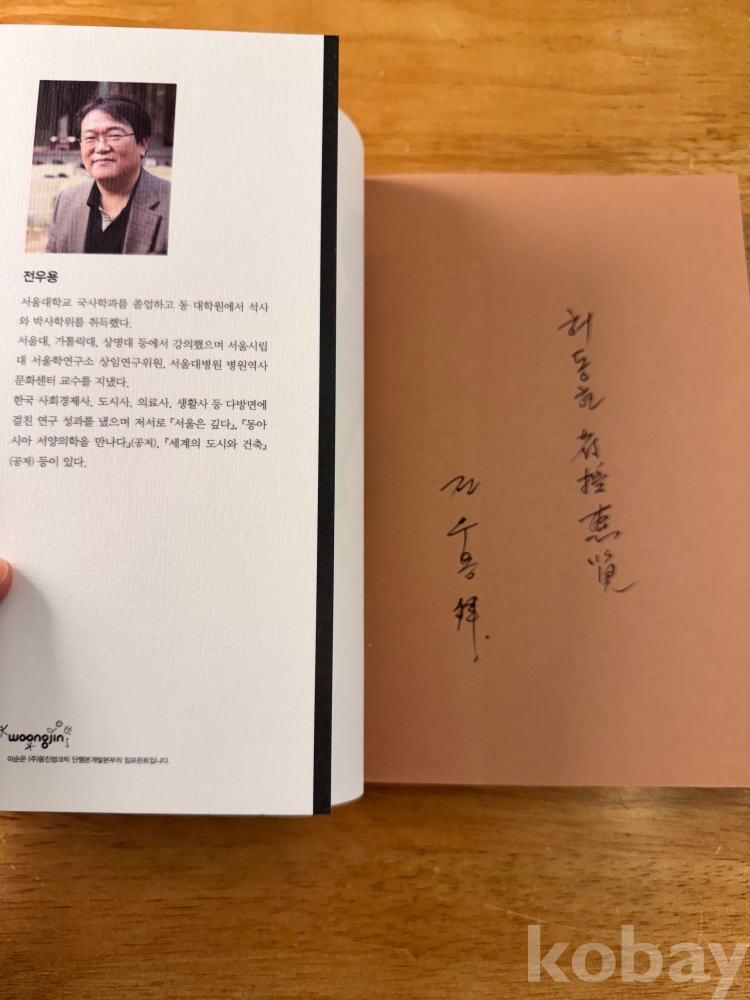 전우용
서울대학교 국사학과를 졸업하고 동 대학원에서 석사
와 박사학위를 취득했다.
서울대, 가톨릭대, 상명대 등에서 강의했으며 서울시립
대 서울학연구소 상임연구위원, 서울대병원 병원역사
문화센터 교수를 지냈다.
한국 사회경제사, 도시사, 의료사, 생활사 등 다방면에
걸친 연구 성과를 냈으며 저서로 『서울은 깊다』, 『동아
시아 서양의학을 만나다』(공저), 『세계의 도시와 건축』
(공저) 등이 있다.
woongjin
이순은 (주)웅진씽크빅 단행본개발본부의 임프린트입니다.
허동현 敎授 惠覽
전우용 拜.
kobay